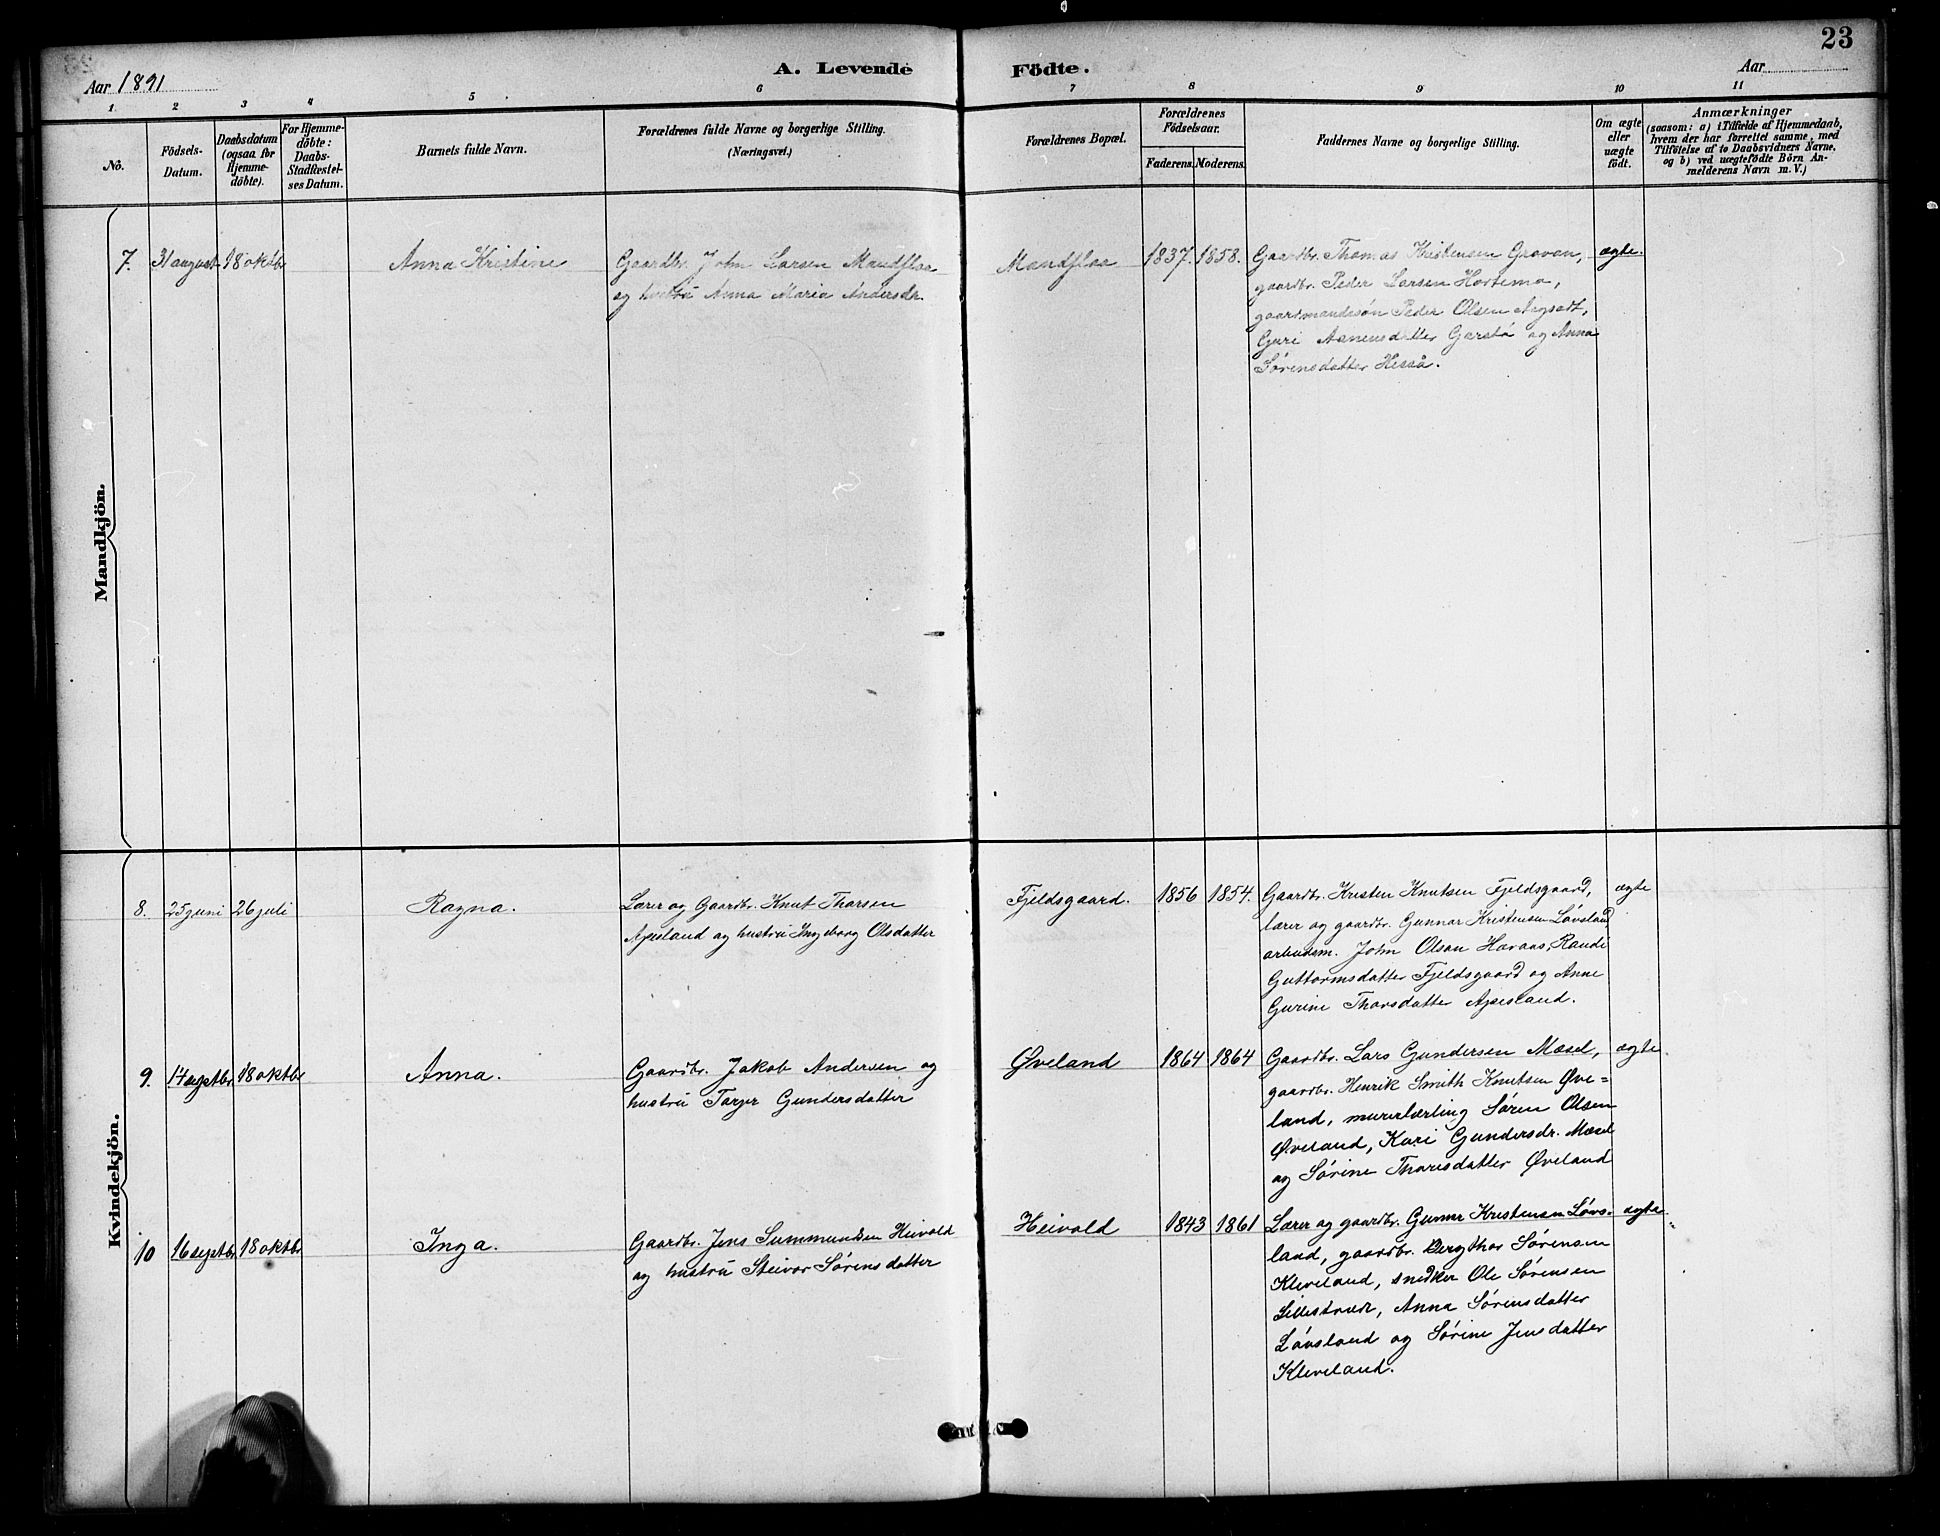 23
Aar 1891
A. Levende Födte.
Aar
1 2 3 4 5 6 7 8 9 10 11
No.
Födsels-
Datum.
Daabsdatum
(ogsaa for
Hjemme-
döbte).
For Hjemme-
döbte:
Daabs-
Stadfæstel-
ses Datum.
Barnets fulde Navn.
Forældrenes fulde Navne og borgerlige Stilling.
(Næringsvei.)
Forældrenes Bopæl.
Forældrenes
Födselsaar.
Faderens. Moderens.
Faddernes Navne og borgerlige Stilling.
Om ægte
eller
uægte
födt.
Anmærkninger
(saasom: a) i Tilfælde af Hjemmedaab,
hvem der har forrettet samme, med
Tilföielse af to Daabsvidners Navne,
og b) ved uægtefödte Börn An-
melderens Navn m. V.)
Mandkjön.
7. 31 august 18 oktbr Anna Kristine
Gaardbr. John Larsen Mandflaa
og hustru Anna Maria Andersdr.
Mandflaa 1837. 1858.
Gaardbr. Thomas Kristensen Gravan,
gaardbr. Peder Larsen Hortema,
gaardmandssøn Peder Olsen
Guri Asnensdatter Garstø og Anna
Sørensdatter Hesså.
ægte.
Kvindekjön.
8. 25 juni 26 juli Ragna.
Lærer og Gaardbr. Knut Thorsen
Apesland og hustru Ingeborg Olsdatter
Fjeldsgaard. 1856 1854.
Gaardbr. Kristen Knutsen Fjeldsgaard,
lærer og gaardbr. Gunnar Kristensen Løvsland,
arbeidsm. John Olson Haraas, Randi
Guttormsdatter Fjeldsgaard og Anne
Gurine Thorsdatter Apesland.
ægte
9. 14 septbr 18 oktbr Anna.
Gaardbr. Jakob Andersen og
hustru Tarjer Gundersdatter
Øveland 1864 1864
Gaardbr. Lars Gundersen Mæsel,
gaardbr. Henrik Smith Knutsen Øve=
land, murerlærling Søren Olsen
Øveland, Kari Gundersdr. Mæsel
og Sørine Thorsdatter Øveland
ægte.
10 16 septbr 18 oktbr Inga.
Gaardbr. Jens Summundsen Heivold
og hustru Steivor Sørensdatter
Heivold 1843 1861
Lærer og gaardbr. Gunnar Kristensen Løvs-
land, gaardbr. Bergthor Sørensen
Kleveland, snedker Ole Sørensen
Lillestrædt, Anna Sørensdatter
Løvsland og Sørine Jensdatter
Kleveland.
ægte